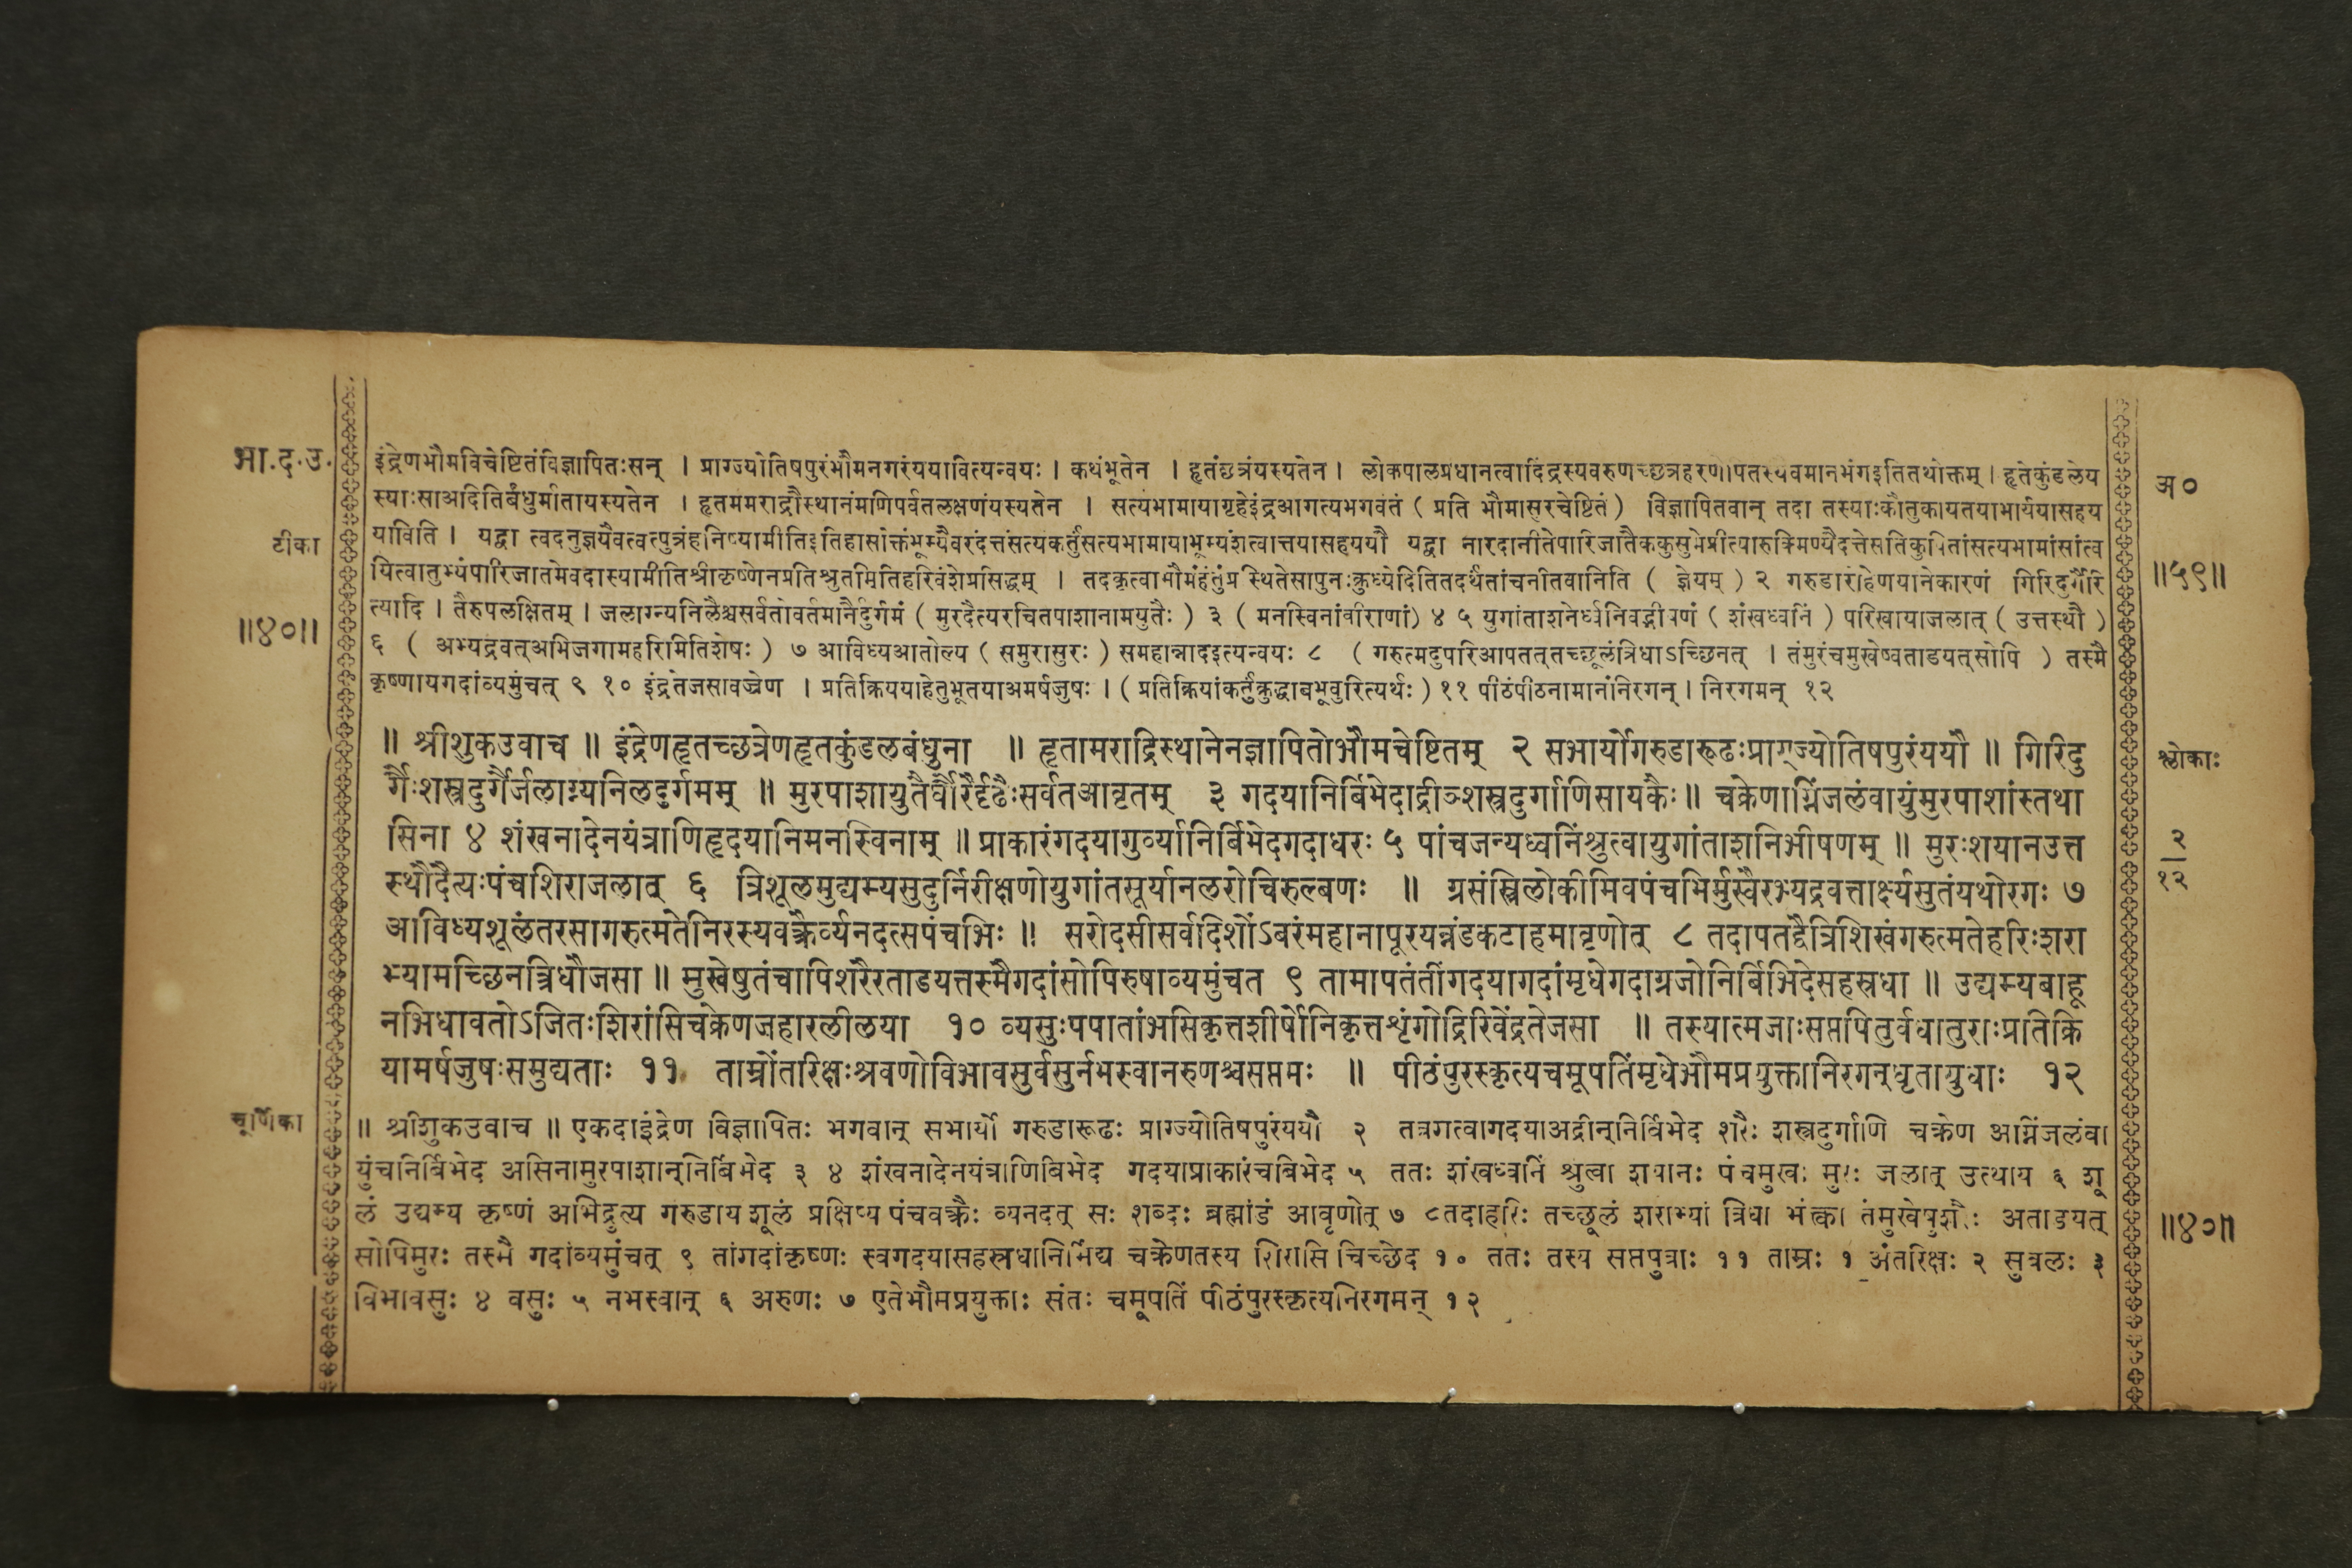 भा.द.उ.
टीका
॥४०॥
इंद्रेणभौमविचेष्टितंविज्ञापितःसन् । प्राग्ज्योतिषपुरंभौमनगरंययावित्यन्वयः । कथंभूतेन । हृतंछत्रंयस्यतेन । लोकपालप्रधानत्वादिंद्रस्यवरुणच्छत्रहरणोपितस्यैवमानभंगइतितथोक्तम् । हृतेकुंडलेय
स्याःसाअदितिर्बंधुर्मातायस्यतेन । हृतममराद्रौस्थानंमणिपर्वतलक्षणंयस्यतेन । सत्यभामायागृहेइंद्रआगत्यभगवंतं ( प्रति भौमासुरचेष्टितं ) विज्ञापितवान् तदा तस्याःकौतुकायतयाभार्ययासहय
याविति । यद्वा त्वदनुज्ञयैवत्वत्पुत्रंहनिष्यामीतिइतिहासोक्तंभूम्यैवरंदत्तंसत्यंकर्तुंसत्यभामायाभूम्यंशत्वात्तयासहययौ यद्वा नारदानीतेपारिजातैककुसुमेप्रीत्यारुक्मिण्यैदत्तेसतिकुपितांसत्यभामांसांत्व
यित्वातुभ्यंपारिजातमेवदास्यामीतिश्रीकृष्णेनप्रतिश्रुतमितिहरिवंशेप्रसिद्धम् । तदकृत्वाभौमंहंतुंप्रस्थितेसापुनःक्रुध्येदितितदर्थंतांचनीतवानिति ( ज्ञेयम् ) २ गरुडारोहेणयानेकारणं गिरिदुर्गैरि
त्यादि । तैरुपलक्षितम् । जलाग्न्यनिलैश्चसर्वतोवर्तमानैर्दुर्गमं ( मुरदैत्यरचितपाशानामयुतैः ) ३ ( मनस्विनांवीराणां) ४ ५ युगांताशनेर्ध्वनिवद्भीषणं ( शंखध्वनिं ) परिखायाजलात् ( उत्तस्थौ )
६ ( अभ्यद्रवत्अभिजगामहरिमितिशेषः ) ७ आविध्यआतोल्य ( समुरासुरः ) समहान्नादइत्यन्वयः ८ ( गरुत्मदुपरिआपतत्तच्छूलंत्रिधाऽच्छिनत् । तंमुरंचमुखेष्वताडयत्सोपि ) तस्मै
कृष्णायगदांव्यमुंचत् ९ १० इंद्रतेजसावज्रेण । प्रतिक्रिययाहेतुभूतयाअमर्षजुषः । ( प्रतिक्रियांकर्तुंक्रुद्धाबभूवुरित्यर्थः ) ११ पीठंपीठनामानंनिरगन् । निरगमन् १२
अ०
॥५९॥
॥ श्रीशुकउवाच ॥ इंद्रेणहृतच्छत्रेणहृतकुंडलबंधुना ॥ हृतामराद्रिस्थानेनज्ञापितोभौमचेष्टितम् २ सभार्योगरुडारूढःप्राग्ज्योतिषपुरंययौ ॥ गिरिदु
र्गैःशस्त्रदुर्गैर्जलाग्न्यनिलदुर्गमम् ॥ मुरपाशायुतैर्घोरैर्दृढैःसर्वतआवृतम् ३ गदयानिर्बिभेदाद्रीञ्शस्त्रदुर्गाणिसायकैः ॥ चक्रेणाग्निंजलंवायुंमुरपाशांस्तथा
सिना ४ शंखनादेनयंत्राणिहृदयानिमनस्विनाम् ॥ प्राकारंगदयागुर्व्यानिर्बिभेदगदाधरः ५ पांचजन्यध्वनिंश्रुत्वायुगांताशनिभीषणम् ॥ मुरःशयानउत्त
स्थौदैत्यःपंचशिराजलात् ६ त्रिशूलमुद्यम्यसुदुर्निरीक्षणोयुगांतसूर्यानलरोचिरुल्बणः ॥ ग्रसंस्त्रिलोकीमिवपंचभिर्मुखैरभ्यद्रवत्तार्क्ष्यसुतंयथोरगः ७
आविध्यशूलंतरसागरुत्मतेनिरस्यवक्त्रैर्व्यनदत्सपंचभिः ॥ सरोदसीसर्वदिशोंऽबरंमहानापूरयन्नंडकटाहमावृणोत् ८ तदापतद्वैत्रिशिखंगरुत्मतेहरिःशरा
भ्यामच्छिनत्त्रिधौजसा ॥ मुखेषुतंचापिशरैरताडयत्तस्मैगदांसोपिरुषाव्यमुंचत ९ तामापतंतींगदयागदांमृधेगदाग्रजोनिर्बिभिदेसहस्रधा ॥ उद्यम्यबाहू
नभिधावतोऽजितःशिरांसिचक्रेणजहारलीलया १० व्यसुःपपातांभसिकृत्तशीर्षोनिकृत्तशृंगोद्रिरिवेंद्रतेजसा ॥ तस्यात्मजाःसप्तपितुर्वधातुराःप्रतिक्रि
यामर्षजुषःसमुद्यताः ११ ताम्रोंतरिक्षःश्रवणोविभावसुर्वसुर्नभस्वानरुणश्चसप्तमः ॥ पीठंपुरस्कृत्यचमूपतिंमृधेभौमप्रयुक्तानिरगन्धृतायुधाः १२
श्लोकाः
२
१२
चूर्णिका
॥ श्रीशुकउवाच ॥ एकदाइंद्रेण विज्ञापितः भगवान् सभार्यो गरुडारूढः प्राग्ज्योतिषपुरंययौ २ तत्रगत्वागदयाअद्रीन्निर्विभेद शरैः शस्त्रदुर्गाणि चक्रेण अग्निंजलंवा
युंचनिर्विभेद असिनामुरपाशान्निर्बिभेद ३ ४ शंखनादेनयंत्राणिबिभेद गदयाप्राकारंचबिभेद ५ ततः शंखध्वनिं श्रुत्वा शयानः पंचमुखः मुरः जलात् उत्थाय ६ शू
लं उद्यम्य कृष्णं अभिद्रुत्य गरुडाय शूलं प्रक्षिप्य पंचवक्त्रैः व्यनदत् सः शब्दः ब्रह्मांडं आवृणोत् ७ ८तदाहरिः तच्छूलं शराभ्यां त्रिधा भंक्त्वा तंमुखेषुशरैः अताडयत्
सोपिमुरः तस्मै गदांव्यमुंचत् ९ तांगदांकृष्णः स्वगदयासहस्रधानिर्भिद्य चक्रेणतस्य शिरांसि चिच्छेद १० ततः तस्य सप्तपुत्राः ११ ताम्रः १ अंतरिक्षः २ सुत्रलः ३
विभावसुः ४ वसुः ५ नभस्वान् ६ अरुणः ७ एतेभौमप्रयुक्ताः संतः चमूपतिं पीठंपुरस्कृत्यनिरगमन् १२
॥४०॥